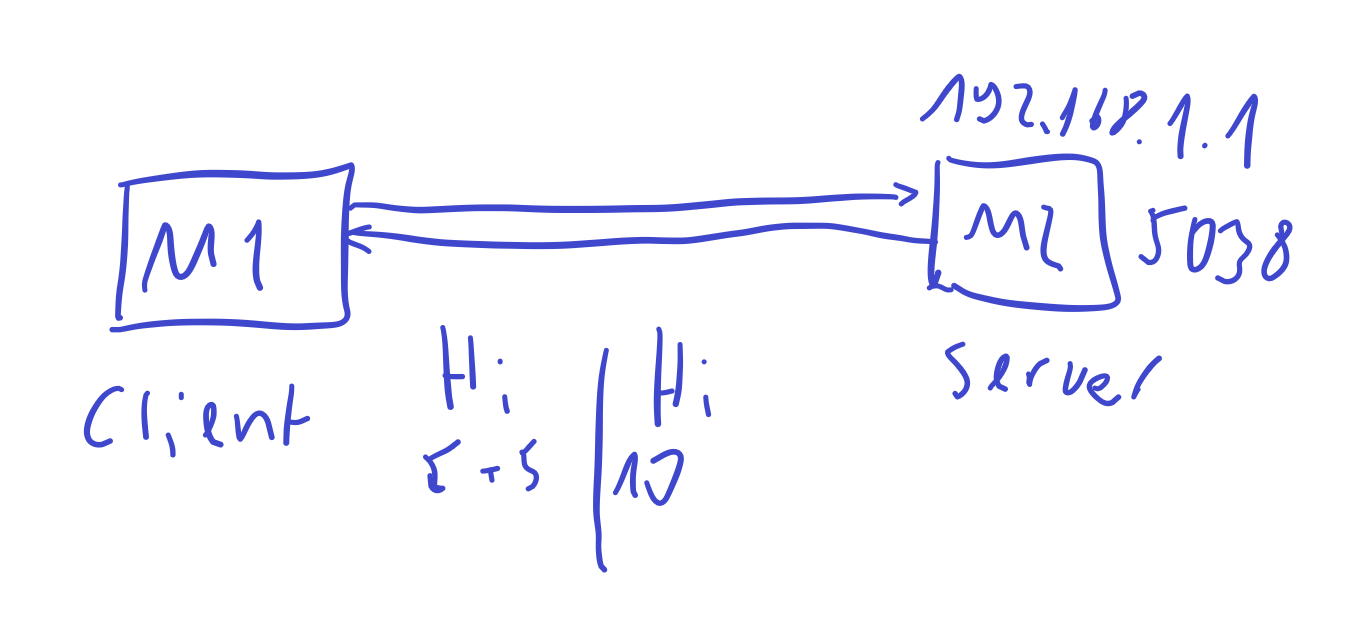 192.168.1.1
M1
M2
5038
Client
Server
Hi
Hi
5+5
10